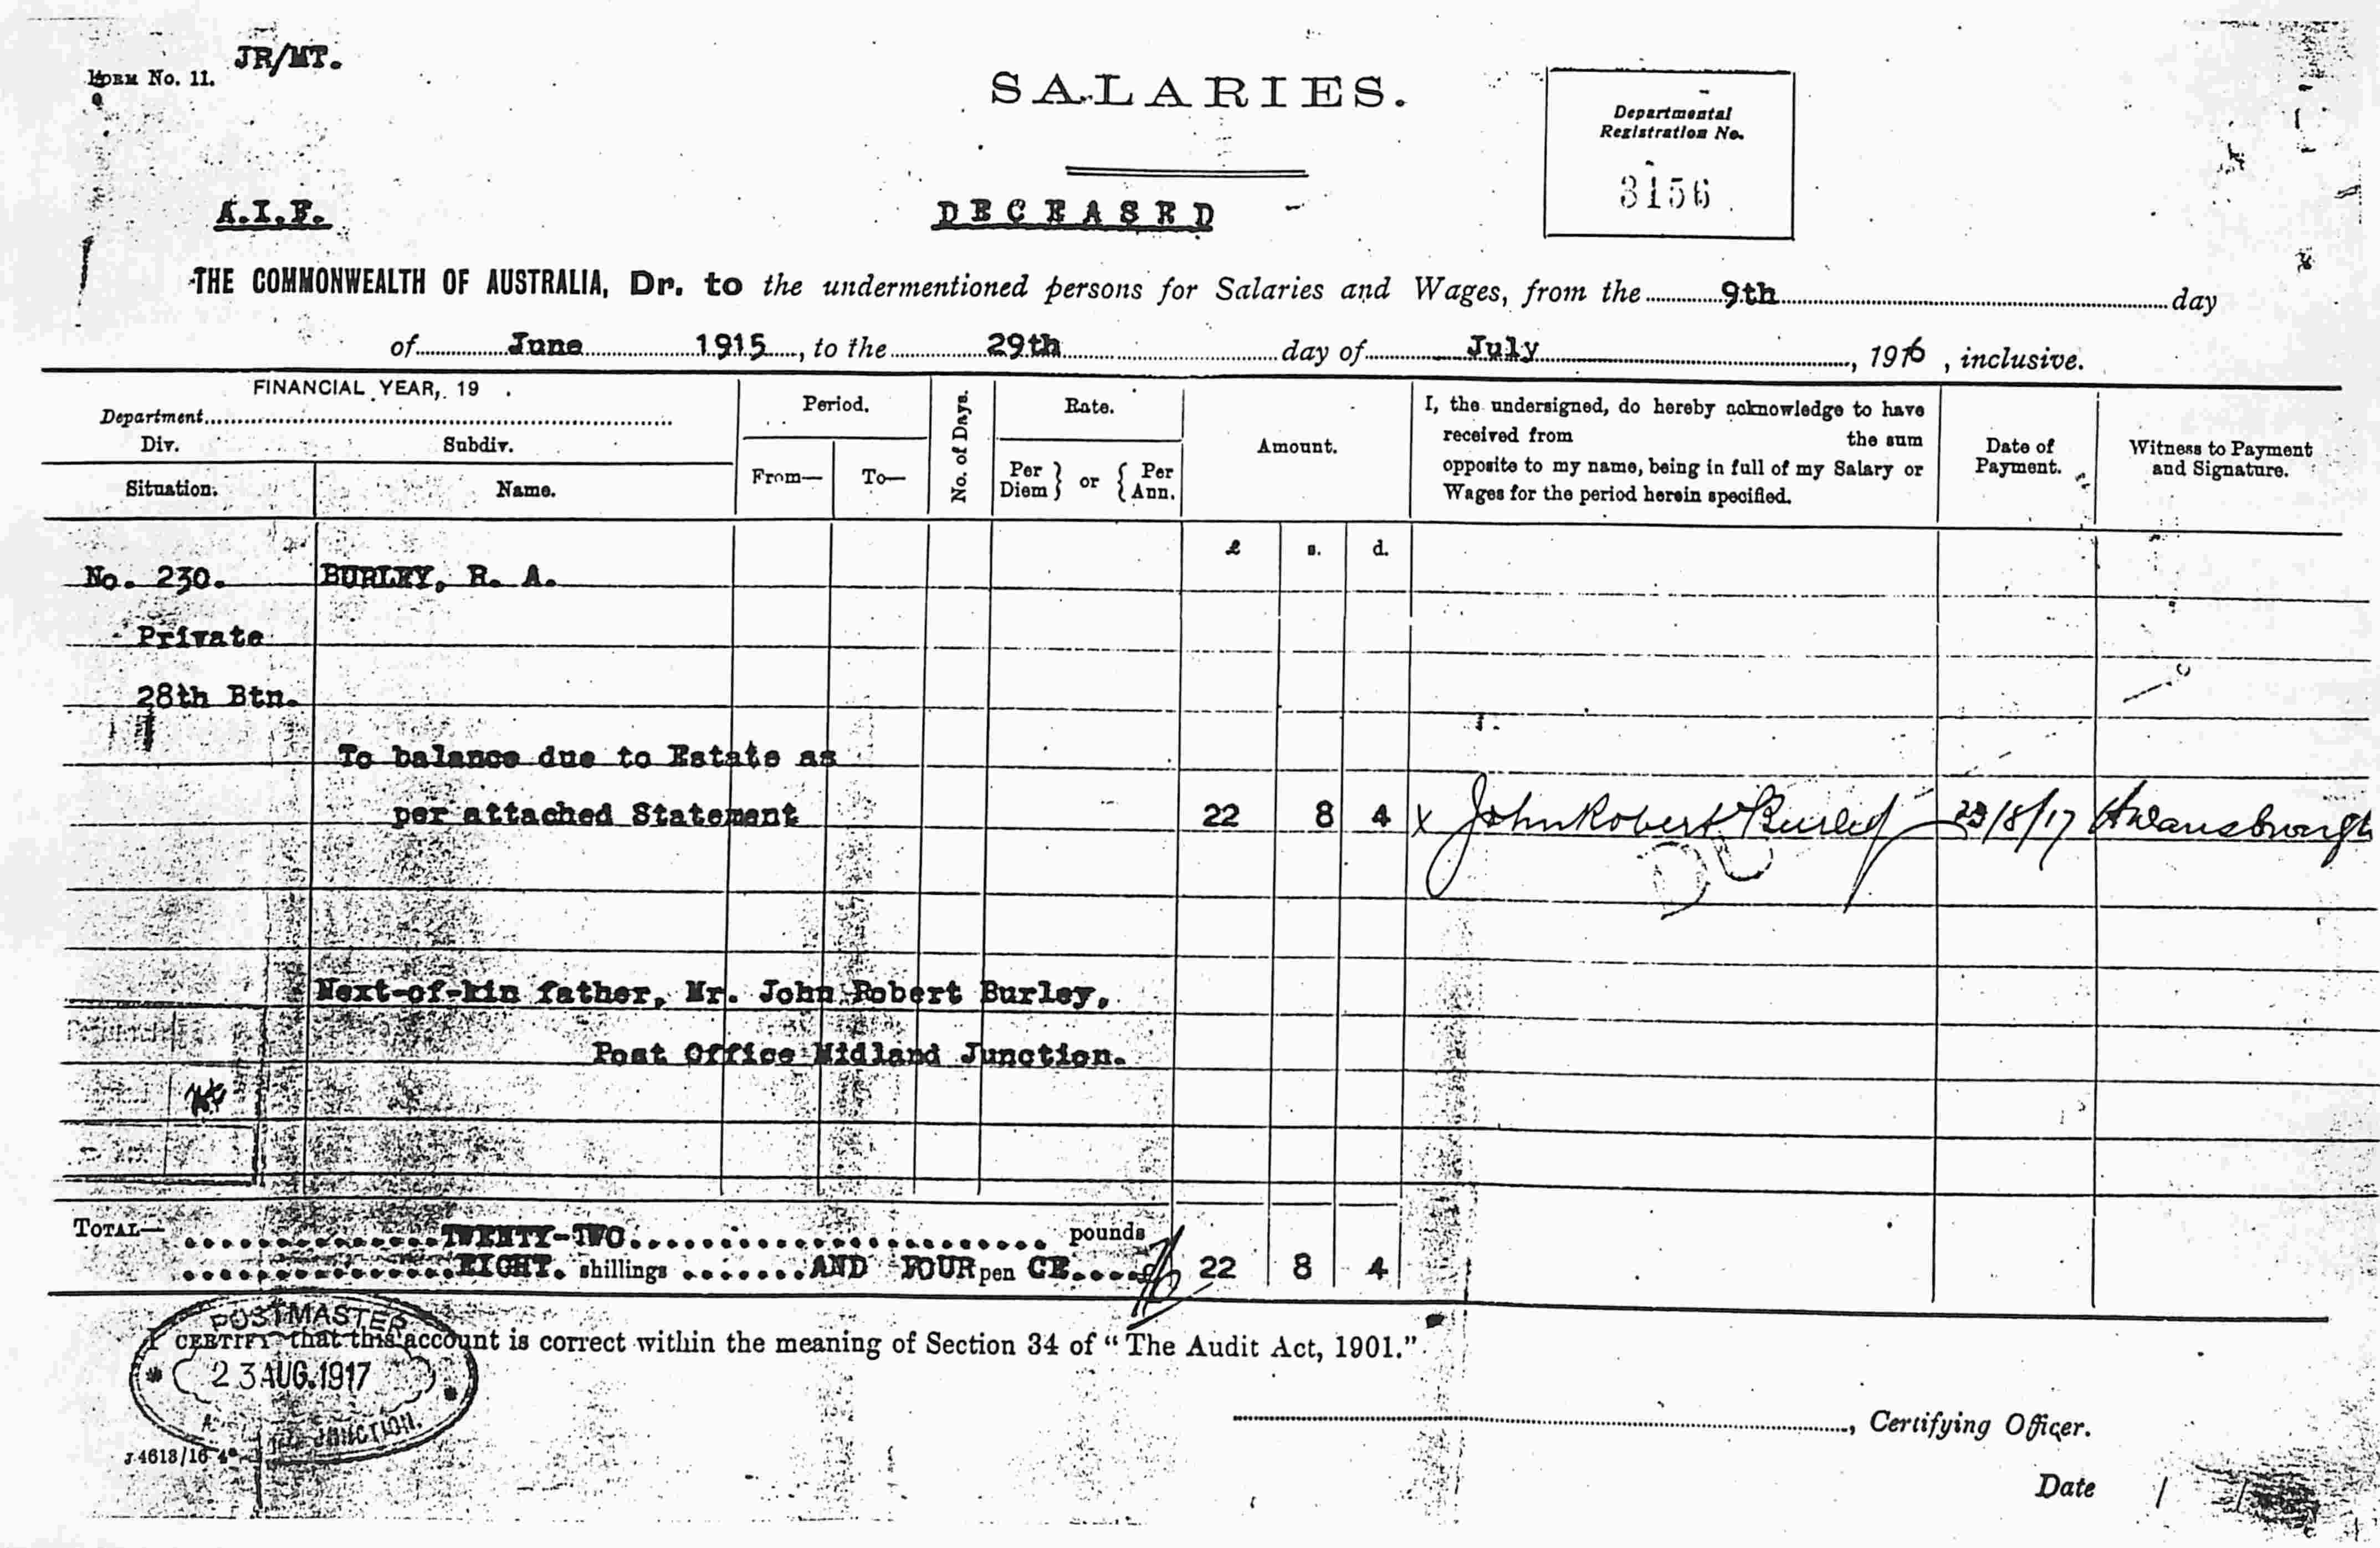 JR/MT.
FORM No. 11.
SALARIES.
Departmental
Registration No.
3156
A.I.F.
DECEASED
THE COMMONWEALTH OF AUSTRALIA, Dr. to the undermentioned persons for Salaries and Wages, from the 9th day
of June 1915, to the 29th day of July, 1916, inclusive.
FINANCIAL YEAR, 19 .
Department
Div. Subdiv.
Situation. Name.
Period.
From— To—
No. of Days.
Rate.
Per Diem } or { Per Ann.
Amount.
I, the undersigned, do hereby acknowledge to have
received from the sum
opposite to my name, being in full of my Salary or
Wages for the period herein specified.
Date of
Payment.
Witness to Payment
and Signature.
£ s. d.
No. 230. BURLEY, R. A.
Private
28th Btn.
To balance due to Estate as
per attached Statement 22 8 4 x John Robert Burley 23/8/17
Next-of-kin father, Mr. John Robert Burley,
Post Office Midland Junction.
TOTAL— TWENTY-TWO pounds
EIGHT. shillings AND FOUR pen CE £ 22 8 4
I CERTIFY that this account is correct within the meaning of Section 34 of "The Audit Act, 1901."
POSTMASTER
23 AUG. 1917
JUNCTION.
, Certifying Officer.
J 4618/16
Date